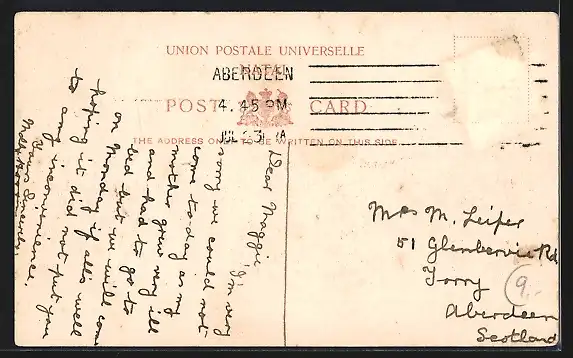 UNION POSTALE UNIVERSELLE
NATAL
ABERDEEN
4.45 PM
POST CARD
THE ADDRESS ONLY TO BE WRITTEN ON THIS SIDE
Dear Maggie, I'm very
sorry we could not
come to-day as my
mother grew very ill
and had to go to
bed but we will come
on Monday if all's well
hoping it did not put you
to any inconvenience.
Yours Sincerely,
Mrs M. Leiper
51 Glenbervie Rd
Torry
Aberdeen
Scotland
9.-